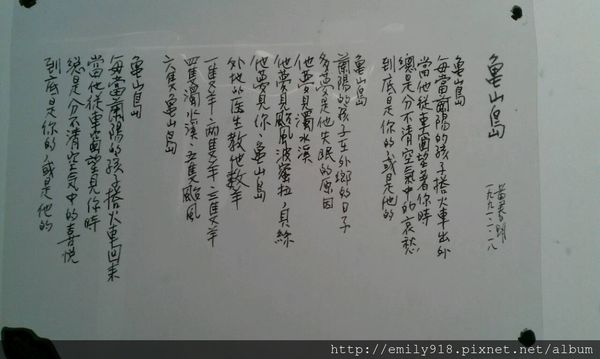 龜山島
黃春明
一九九一・二・八
龜山島
每當蘭陽的孩子搭火車出外
當他從車窗望著你時
總是分不清空氣中的哀愁
到底是你的,或是他的
龜山島
蘭陽的孩子在外鄉的日子
多夢是他失眠的原因
他夢見濁水溪
他夢見颱風波蜜拉,貝絲
他夢見你,龜山島
外地的醫生教他數羊
一隻羊,兩隻羊,三隻羊
四隻濁水溪,五隻颱風
六隻龜山島
龜山島
每當蘭陽的孩子搭火車回來
當他從車窗望見你時
總是分不清空氣中的喜悅
到底是你的,或是他的
http://emily918.pixnet.net/album